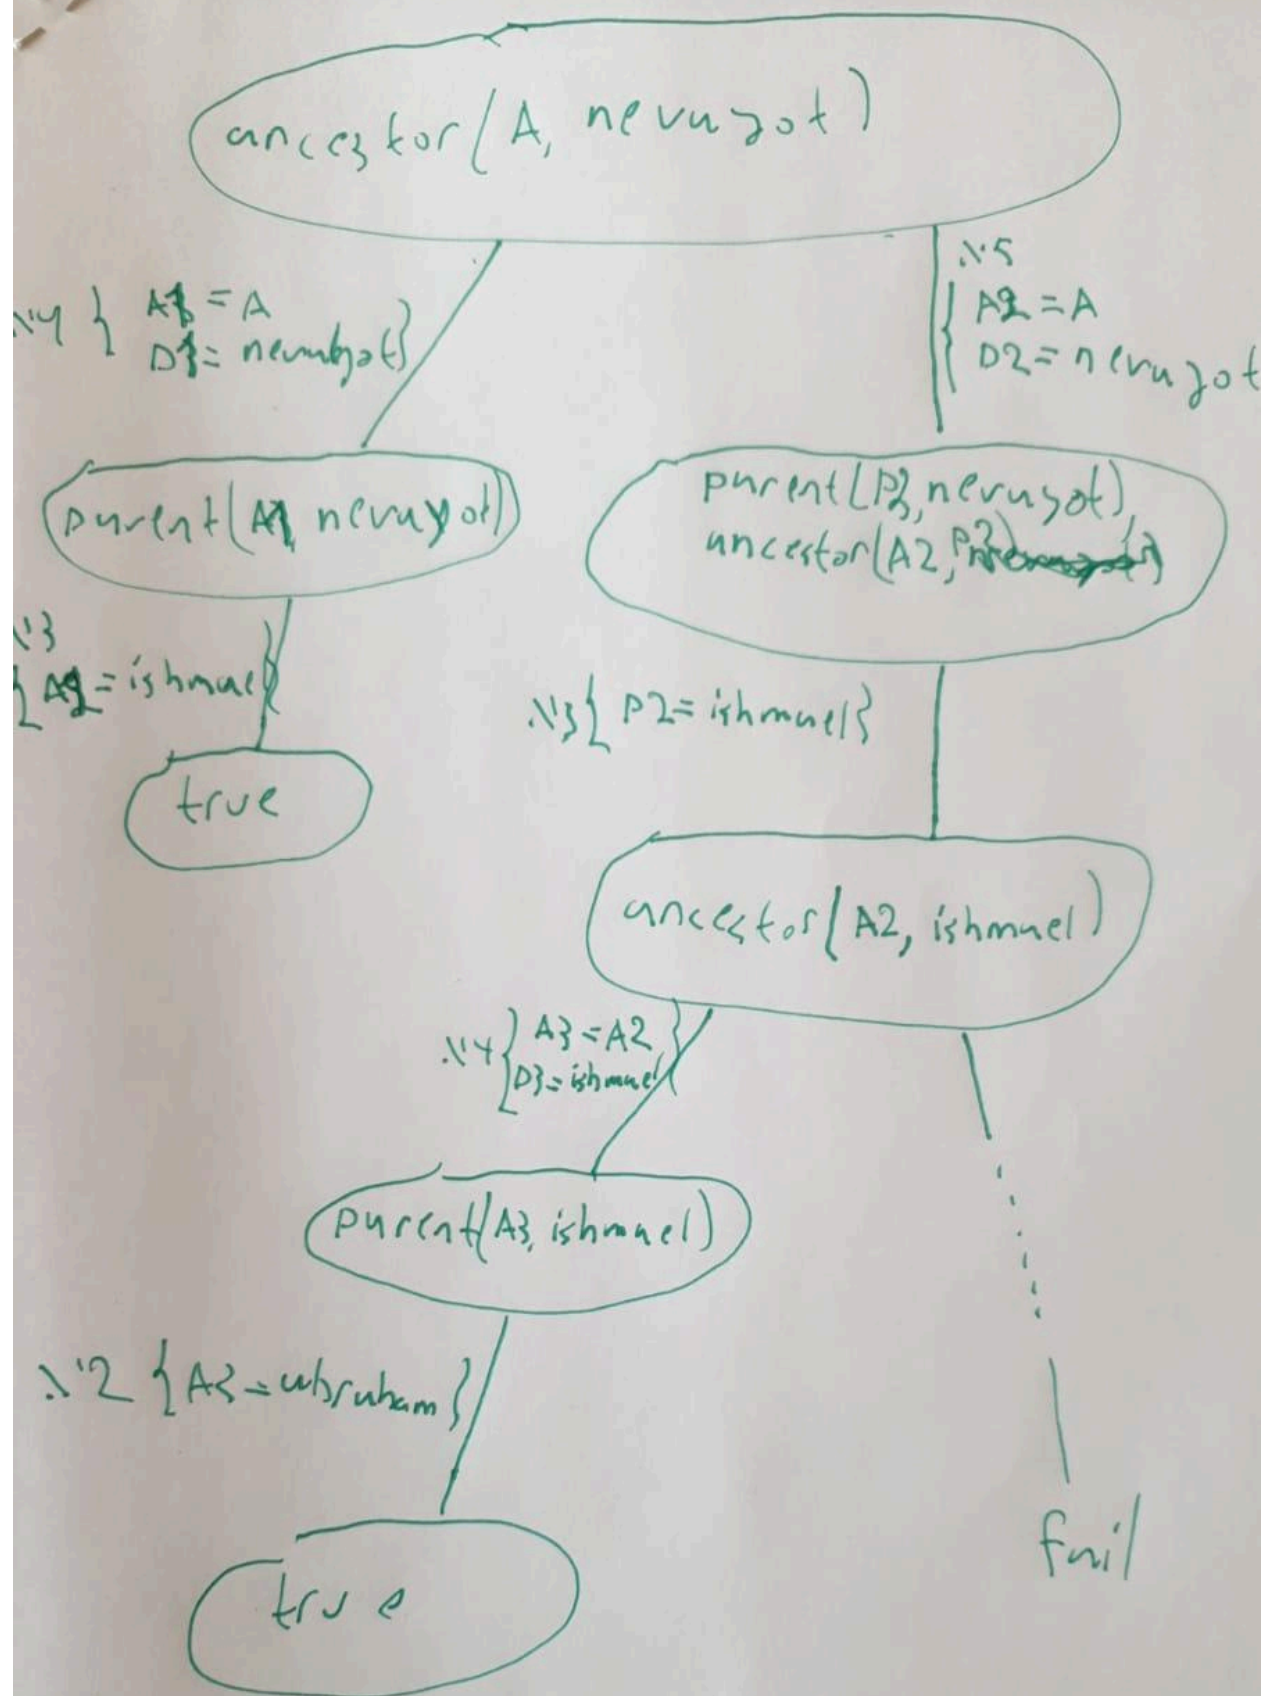 ancestor(A, nevayot)
.\\'4 { A1 = A
D1 = nevayot}
.\\'5
{ A2 = A
D2 = nevayot
parent(A1, nevayot)
parent(P2, nevayot),
ancestor(A2, P2)
\\'3
{ A1 = ishmael}
.\\'3 { P2 = ishmael}
true
ancestor(A2, ishmael)
.\\'4 { A3 = A2
D3 = ishmael}
parent(A3, ishmael)
.\\'2 { A3 = abraham}
fail
true